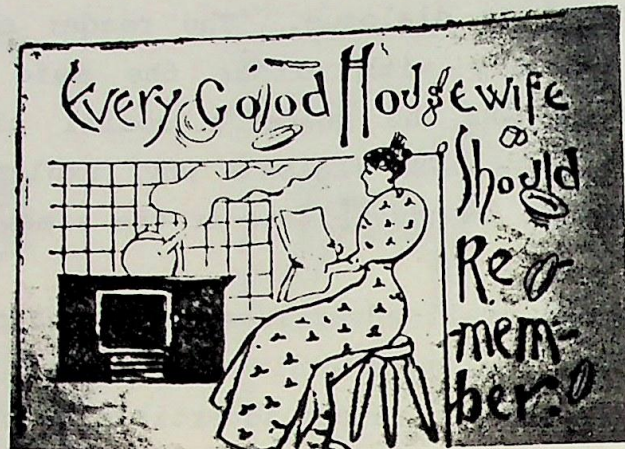 Every Good Housewife
Should
Re
mem-
ber: